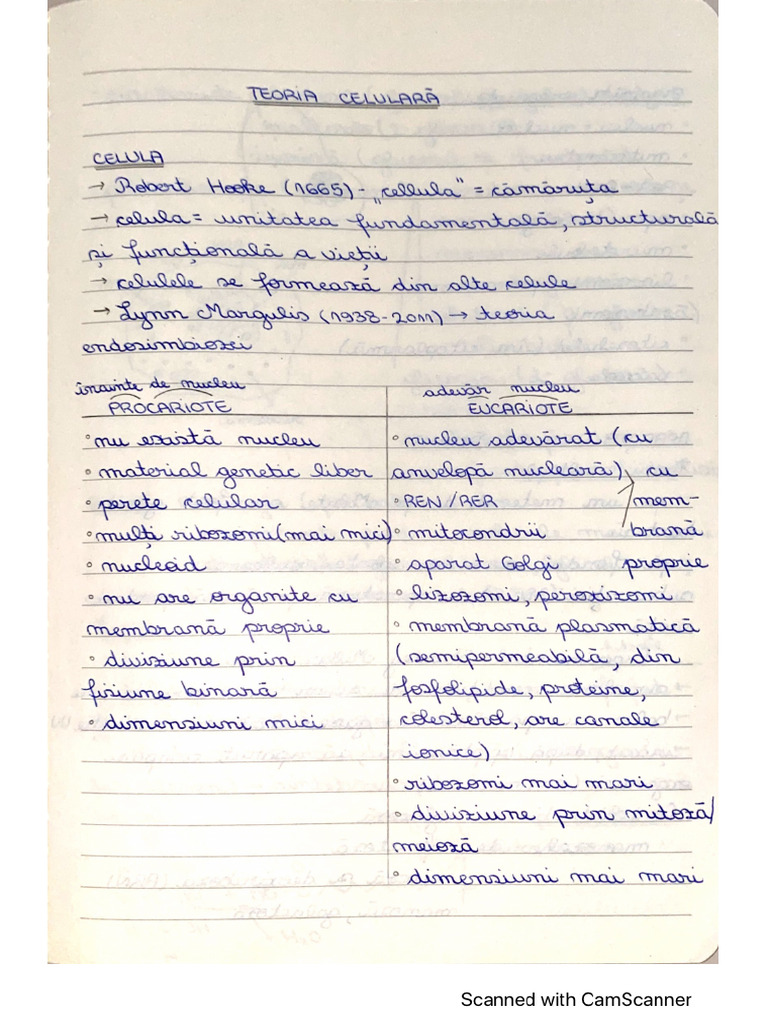 TEORIA CELULARĂ
CELULA
→ Robert Hooke (1665) - „cellula" = cămăruța
→ celula = unitatea fundamentală, structurală
și funcțională a vieții
→ celulele se formează din alte celule
→ Lynn Margulis (1938-2011) → teoria
endosimbiozei
înainte de nucleu
PROCARIOTE
• nu există nucleu
• material genetic liber
• perete celular
• mulți ribozomi (mai mici)
• nucleoid
• nu are organite cu
membrană proprie
• diviziune prin
fisiune binară
• dimensiuni mici
adevăr nucleu
EUCARIOTE
• nucleu adevărat (cu
anvelopă nucleară) cu
• REN / RER mem-
• mitocondrii brană
• aparat Golgi proprie
• lizozomi, peroxizomi
• membrană plasmatică
(semipermeabilă, din
fosfolipide, proteine,
colesterol, are canale
ionice)
• ribozomi mai mari
• diviziune prin mitoză/
meioză
• dimensiuni mai mari
Scanned with CamScanner